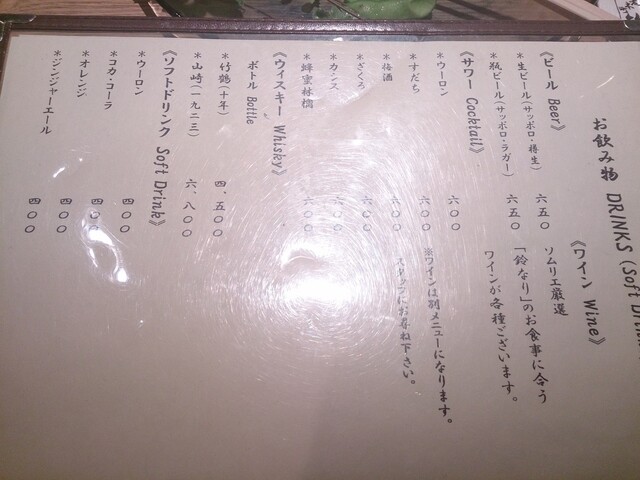 お飲み物 DRINKS (Soft Drin
《ビール Beer》
＊生ビール(サッポロ・樽生) 六五〇
＊瓶ビール(サッポロ・ラガー) 六五〇
《サワー Cocktail》
＊ウーロン 六〇〇
＊すだち 六〇〇
＊梅酒 六〇〇
＊ざくろ
＊カシス 六〇〇
＊蜂蜜林檎 六〇〇
《ウィスキー Whisky》
ボトル Bottle
＊竹鶴(十年) 四、五〇〇
＊山崎(一九二三) 六、八〇〇
《ソフードリンク Soft Drink》
＊ウーロン 四〇〇
＊コカ・コーラ 四〇〇
＊オレンジ 四〇〇
＊ジンジャーエール 四〇〇
《ワイン Wine》
ソムリエ厳選
「鈴なり」のお食事に合う
ワインが各種ございます。
※ワインは別メニューになります。
スタッフにお尋ね下さい。